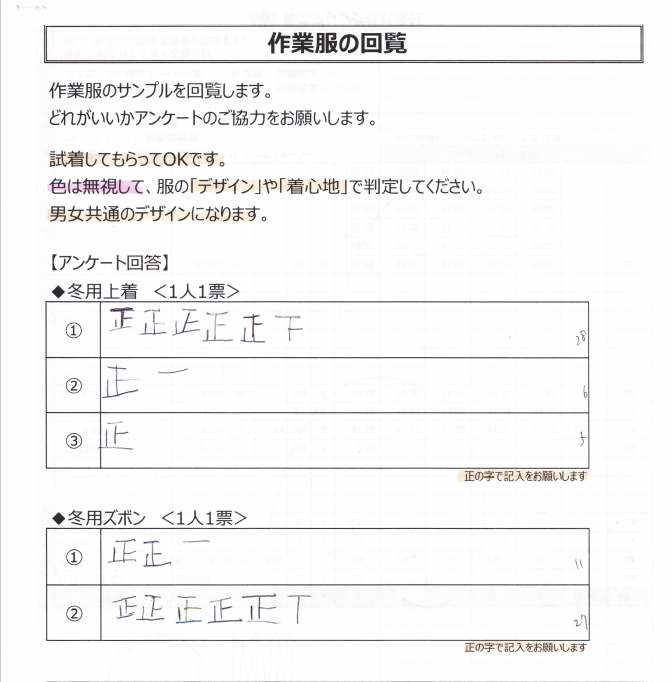 作業服の回覧
作業服のサンプルを回覧します。
どれがいいかアンケートのご協力をお願いします。
試着してもらってOKです。
色は無視して、服の「デザイン」や「着心地」で判定してください。
男女共通のデザインになります。
【アンケート回答】
◆冬用上着　<1人1票>
① 正正正正正下 28
② 正一 6
③ 正 5
正の字で記入をお願いします
◆冬用ズボン　<1人1票>
① 正正一 11
② 正正正正正丅 27
正の字で記入をお願いします